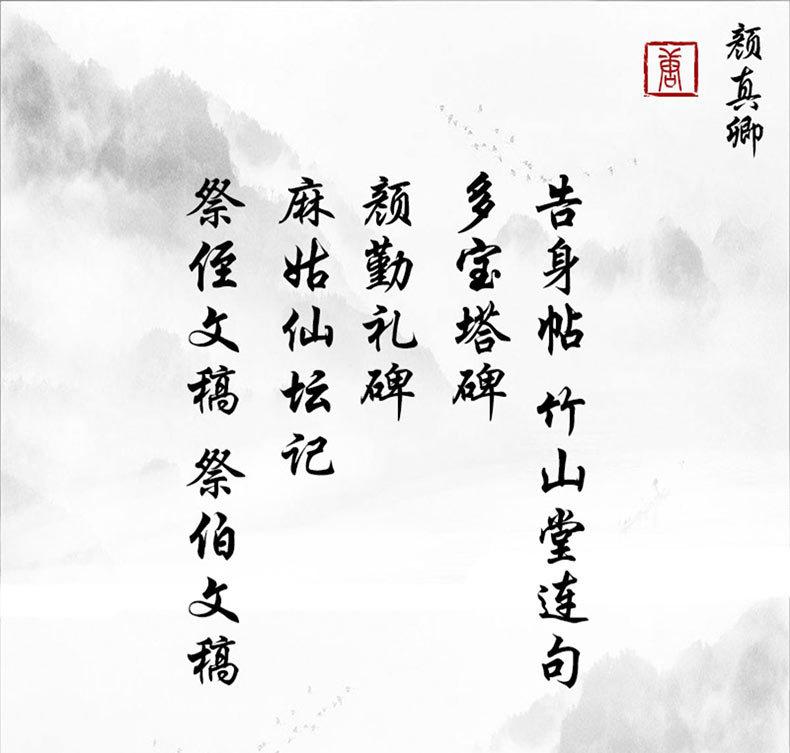 颜真卿
唐
告身帖 竹山堂连句
多宝塔碑
颜勤礼碑
麻姑仙坛记
祭侄文稿 祭伯文稿